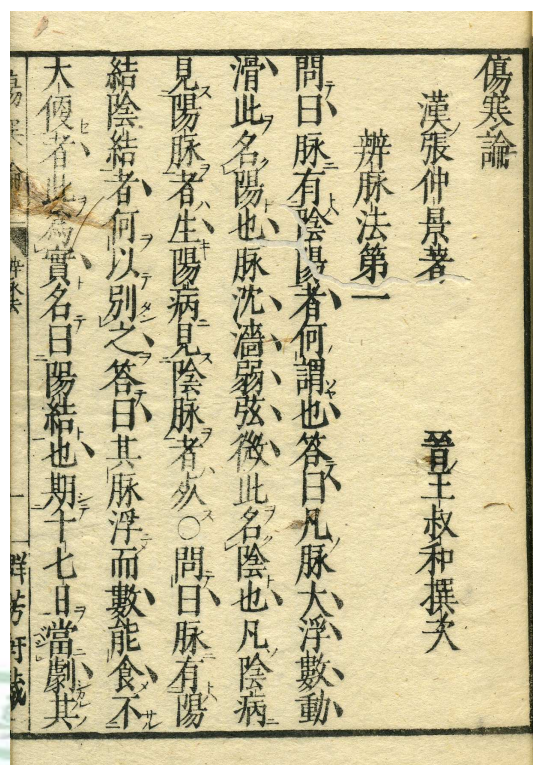 傷寒論
漢張仲景著 晉王叔和撰次
辨脉法第一
問曰脉有陰陽者何謂也答曰凡脉大浮數動
滑此名陽也脉沈濇弱弦微此名陰也凡陰病
見陽脉者生陽病見陰脉者死○問曰脉有陽
結陰結者何以別之答曰其脉浮而數能食不
大便者此爲實名曰陽結也期十七日當劇其
傷寒論 辨脉法 一 群芳軒藏